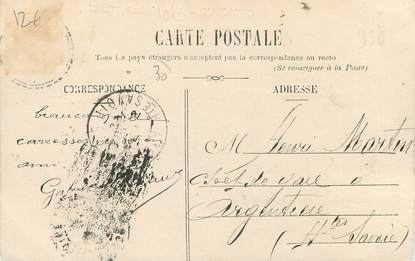 12€
CARTE POSTALE
Tous les pays étrangers n'acceptent pas la correspondance au recto
(Se renseigner à la Poste)
30
CORRESPONDANCE
ADRESSE
beaucoup de
carresses
ami
M Henri Martin
chef de gare à
Argentière
(Hte Savoie)